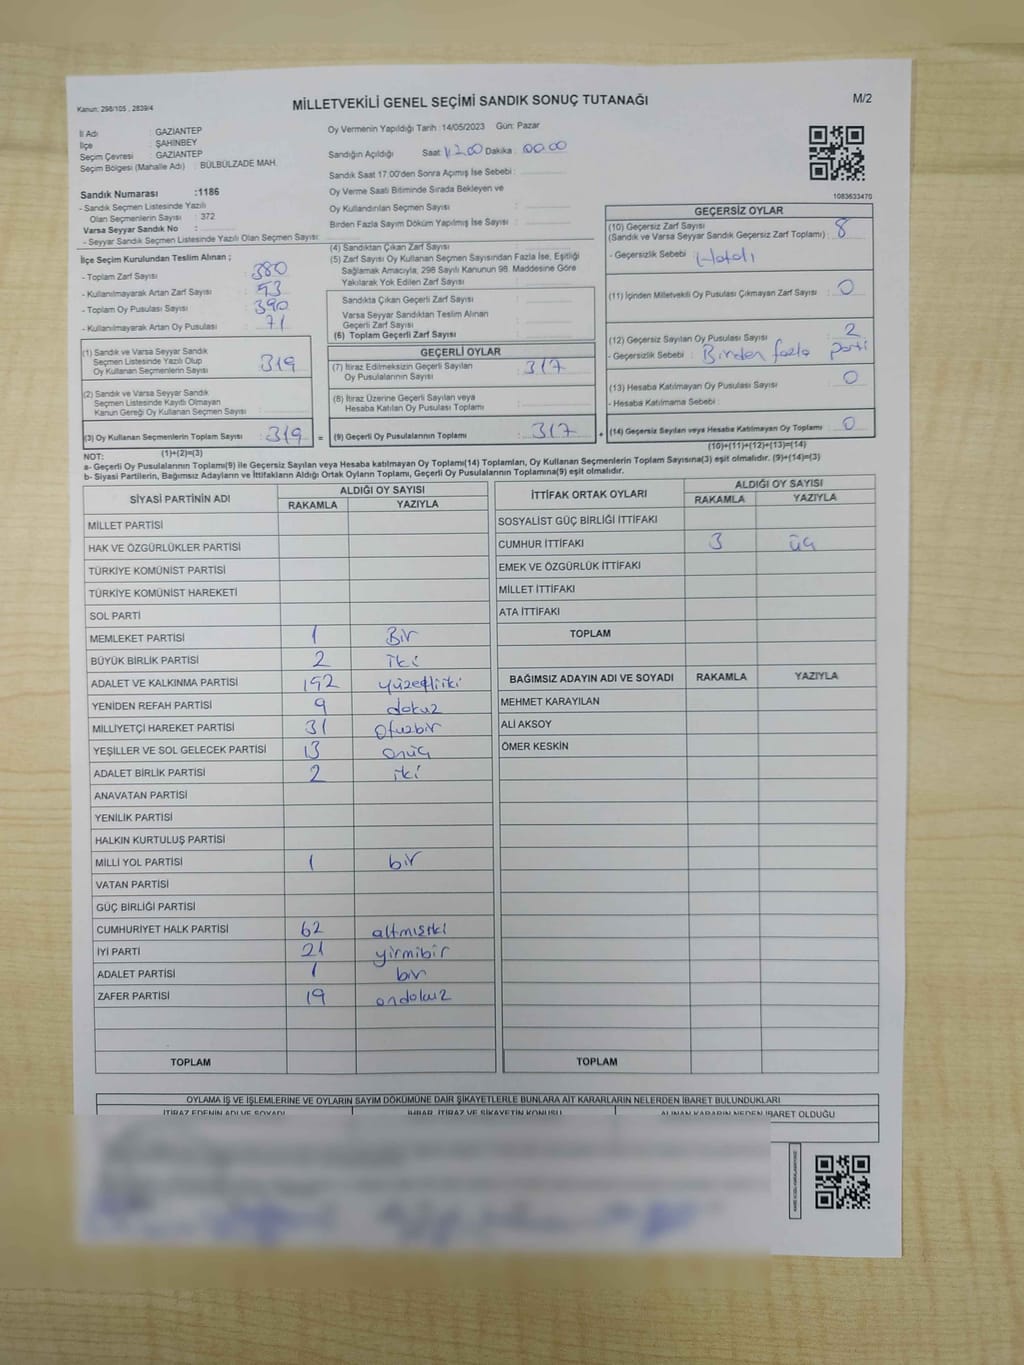 Kanun: 298/105 , 2839/4
MİLLETVEKİLİ GENEL SEÇİMİ SANDIK SONUÇ TUTANAĞI
M/2
İl Adı : GAZİANTEP
İlçe : ŞAHİNBEY
Seçim Çevresi : GAZİANTEP
Seçim Bölgesi (Mahalle Adı) : BÜLBÜLZADE MAH.
Sandık Numarası :1186
- Sandık Seçmen Listesinde Yazılı
Olan Seçmenlerin Sayısı : 372
Varsa Seyyar Sandık No :
- Seyyar Sandık Seçmen Listesinde Yazılı Olan Seçmen Sayısı:
İlçe Seçim Kurulundan Teslim Alınan ;
- Toplam Zarf Sayısı : 380
- Kullanılmayarak Artan Zarf Sayısı : 53
- Toplam Oy Pusulası Sayısı : 390
- Kullanılmayarak Artan Oy Pusulası : 71
(1) Sandık ve Varsa Seyyar Sandık
Seçmen Listesinde Yazılı Olup
Oy Kullanan Seçmenlerin Sayısı : 319
(2) Sandık ve Varsa Seyyar Sandık
Seçmen Listesinde Kayıtlı Olmayan
Kanun Gereği Oy Kullanan Seçmen Sayısı :
(3) Oy Kullanan Seçmenlerin Toplam Sayısı : 319 =
(1)+(2)=(3)
Oy Vermenin Yapıldığı Tarih :14/05/2023 Gün: Pazar
Sandığın Açıldığı Saat: Dakika : 00.00
Sandık Saat 17.00'den Sonra Açımış İse Sebebi :
Oy Verme Saati Bitiminde Sırada Bekleyen ve
Oy Kullandırılan Seçmen Sayısı :
Birden Fazla Sayım Döküm Yapılmış İse Sayısı :
(4) Sandıktan Çıkan Zarf Sayısı :
(5) Zarf Sayısı Oy Kullanan Seçmen Sayısından Fazla İse, Eşitliği
Sağlamak Amacıyla; 298 Sayılı Kanunun 98. Maddesine Göre
Yakılarak Yok Edilen Zarf Sayısı :
Sandıkta Çıkan Geçerli Zarf Sayısı :
Varsa Seyyar Sandıktan Teslim Alınan
Geçerli Zarf Sayısı :
(6) Toplam Geçerli Zarf Sayısı :
GEÇERLİ OYLAR
(7) İtiraz Edilmeksizin Geçerli Sayılan
Oy Pusulalarının Sayısı : 317
(8) İtiraz Üzerine Geçerli Sayılan veya
Hesaba Katılan Oy Pusulası Toplamı :
(9) Geçerli Oy Pusulalarının Toplamı : 317 +
1083633470
GEÇERSİZ OYLAR
(10) Geçersiz Zarf Sayısı
(Sandık ve Varsa Seyyar Sandık Geçersiz Zarf Toplamı) : 8
- Geçersizlik Sebebi : Hatalı
(11) İçinden Milletvekili Oy Pusulası Çıkmayan Zarf Sayısı : 0
(12) Geçersiz Sayılan Oy Pusulası Sayısı : 2
- Geçersizlik Sebebi : Birden fazla parti
(13) Hesaba Katılmayan Oy Pusulası Sayısı : 0
- Hesaba Katılmama Sebebi :
(14) Geçersiz Sayılan veya Hesaba Katılmayan Oy Toplamı : 0
(10)+(11)+(12)+(13)=(14)
NOT:
a- Geçerli Oy Pusulalarının Toplamı(9) ile Geçersiz Sayılan veya Hesaba katılmayan Oy Toplamı(14) Toplamları, Oy Kullanan Seçmenlerin Toplam Sayısına(3) eşit olmalıdır. (9)+(14)=(3)
b- Siyasi Partilerin, Bağımsız Adayların ve İttifakların Aldığı Ortak Oyların Toplamı, Geçerli Oy Pusulalarının Toplamına(9) eşit olmalıdır.
SİYASİ PARTİNİN ADI ALDIĞI OY SAYISI
RAKAMLA YAZIYLA
MİLLET PARTİSİ
HAK VE ÖZGÜRLÜKLER PARTİSİ
TÜRKİYE KOMÜNİST PARTİSİ
TÜRKİYE KOMÜNİST HAREKETİ
SOL PARTİ
MEMLEKET PARTİSİ 1 Bir
BÜYÜK BİRLİK PARTİSİ 2 iki
ADALET VE KALKINMA PARTİSİ 152 yüzelliiki
YENİDEN REFAH PARTİSİ 9 dokuz
MİLLİYETÇİ HAREKET PARTİSİ 31 otuzbir
YEŞİLLER VE SOL GELECEK PARTİSİ 13 onüç
ADALET BİRLİK PARTİSİ 2 iki
ANAVATAN PARTİSİ
YENİLİK PARTİSİ
HALKIN KURTULUŞ PARTİSİ
MİLLİ YOL PARTİSİ 1 bir
VATAN PARTİSİ
GÜÇ BİRLİĞİ PARTİSİ
CUMHURİYET HALK PARTİSİ 62 altmışiki
İYİ PARTİ 21 yirmibir
ADALET PARTİSİ 1 bir
ZAFER PARTİSİ 19 ondokuz
TOPLAM
İTTİFAK ORTAK OYLARI ALDIĞI OY SAYISI
RAKAMLA YAZIYLA
SOSYALİST GÜÇ BİRLİĞİ İTTİFAKI
CUMHUR İTTİFAKI 3 üç
EMEK VE ÖZGÜRLÜK İTTİFAKI
MİLLET İTTİFAKI
ATA İTTİFAKI
TOPLAM
BAĞIMSIZ ADAYIN ADI VE SOYADI RAKAMLA YAZIYLA
MEHMET KARAYILAN
ALİ AKSOY
ÖMER KESKİN
TOPLAM
OYLAMA İŞ VE İŞLEMLERİNE VE OYLARIN SAYIM DÖKÜMÜNE DAİR ŞİKAYETLERLE BUNLARA AİT KARARLARIN NELERDEN İBARET BULUNDUKLARI
İTİRAZ EDENİN ADI VE SOYADI İHBAR, İTİRAZ VE ŞİKAYETİN KONUSU ALINAN KARARIN NEDEN İBARET OLDUĞU